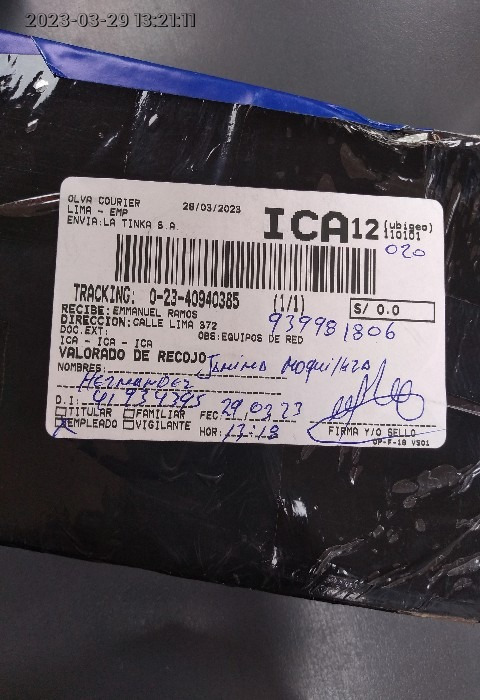 2023-03-29 13:21:11
OLVA COURIER
LIMA - EMP 28/03/2023
ENVIA:LA TINKA S.A.
ICA12 (ubigeo) 110101
020
TRACKING: 0-23-40940385 (1/1)
S/ 0.0
RECIBE: EMMANUEL RAMOS
939981806
DIRECCION:CALLE LIMA 372
DOC.EXT: OBS:EQUIPOS DE RED
ICA - ICA - ICA
VALORADO DE RECOJO
NOMBRES: Janina Moquillaza
HERNANDEZ
D.I: 41934295
TITULAR FAMILIAR FEC: 29/03/23
EMPLEADO VIGILANTE HOR: 13:18
FIRMA Y/O SELLO
OP-F-18 VS01